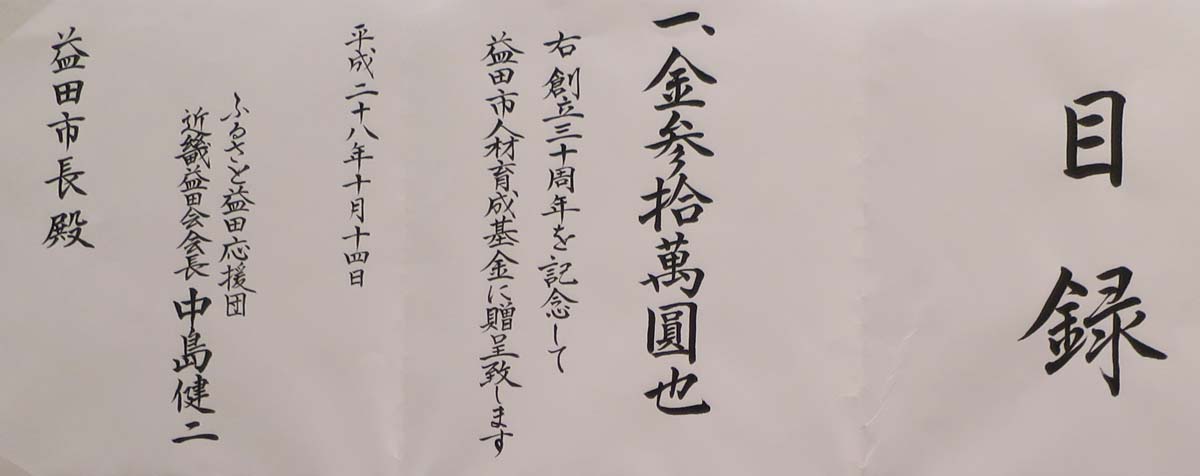 目録
一、金参拾萬圓也
右創立三十周年を記念して
益田市人材育成基金に贈呈致します
平成二十八年十月十四日
ふるさと益田応援団
近畿益田会会長 中島健二
益田市長殿